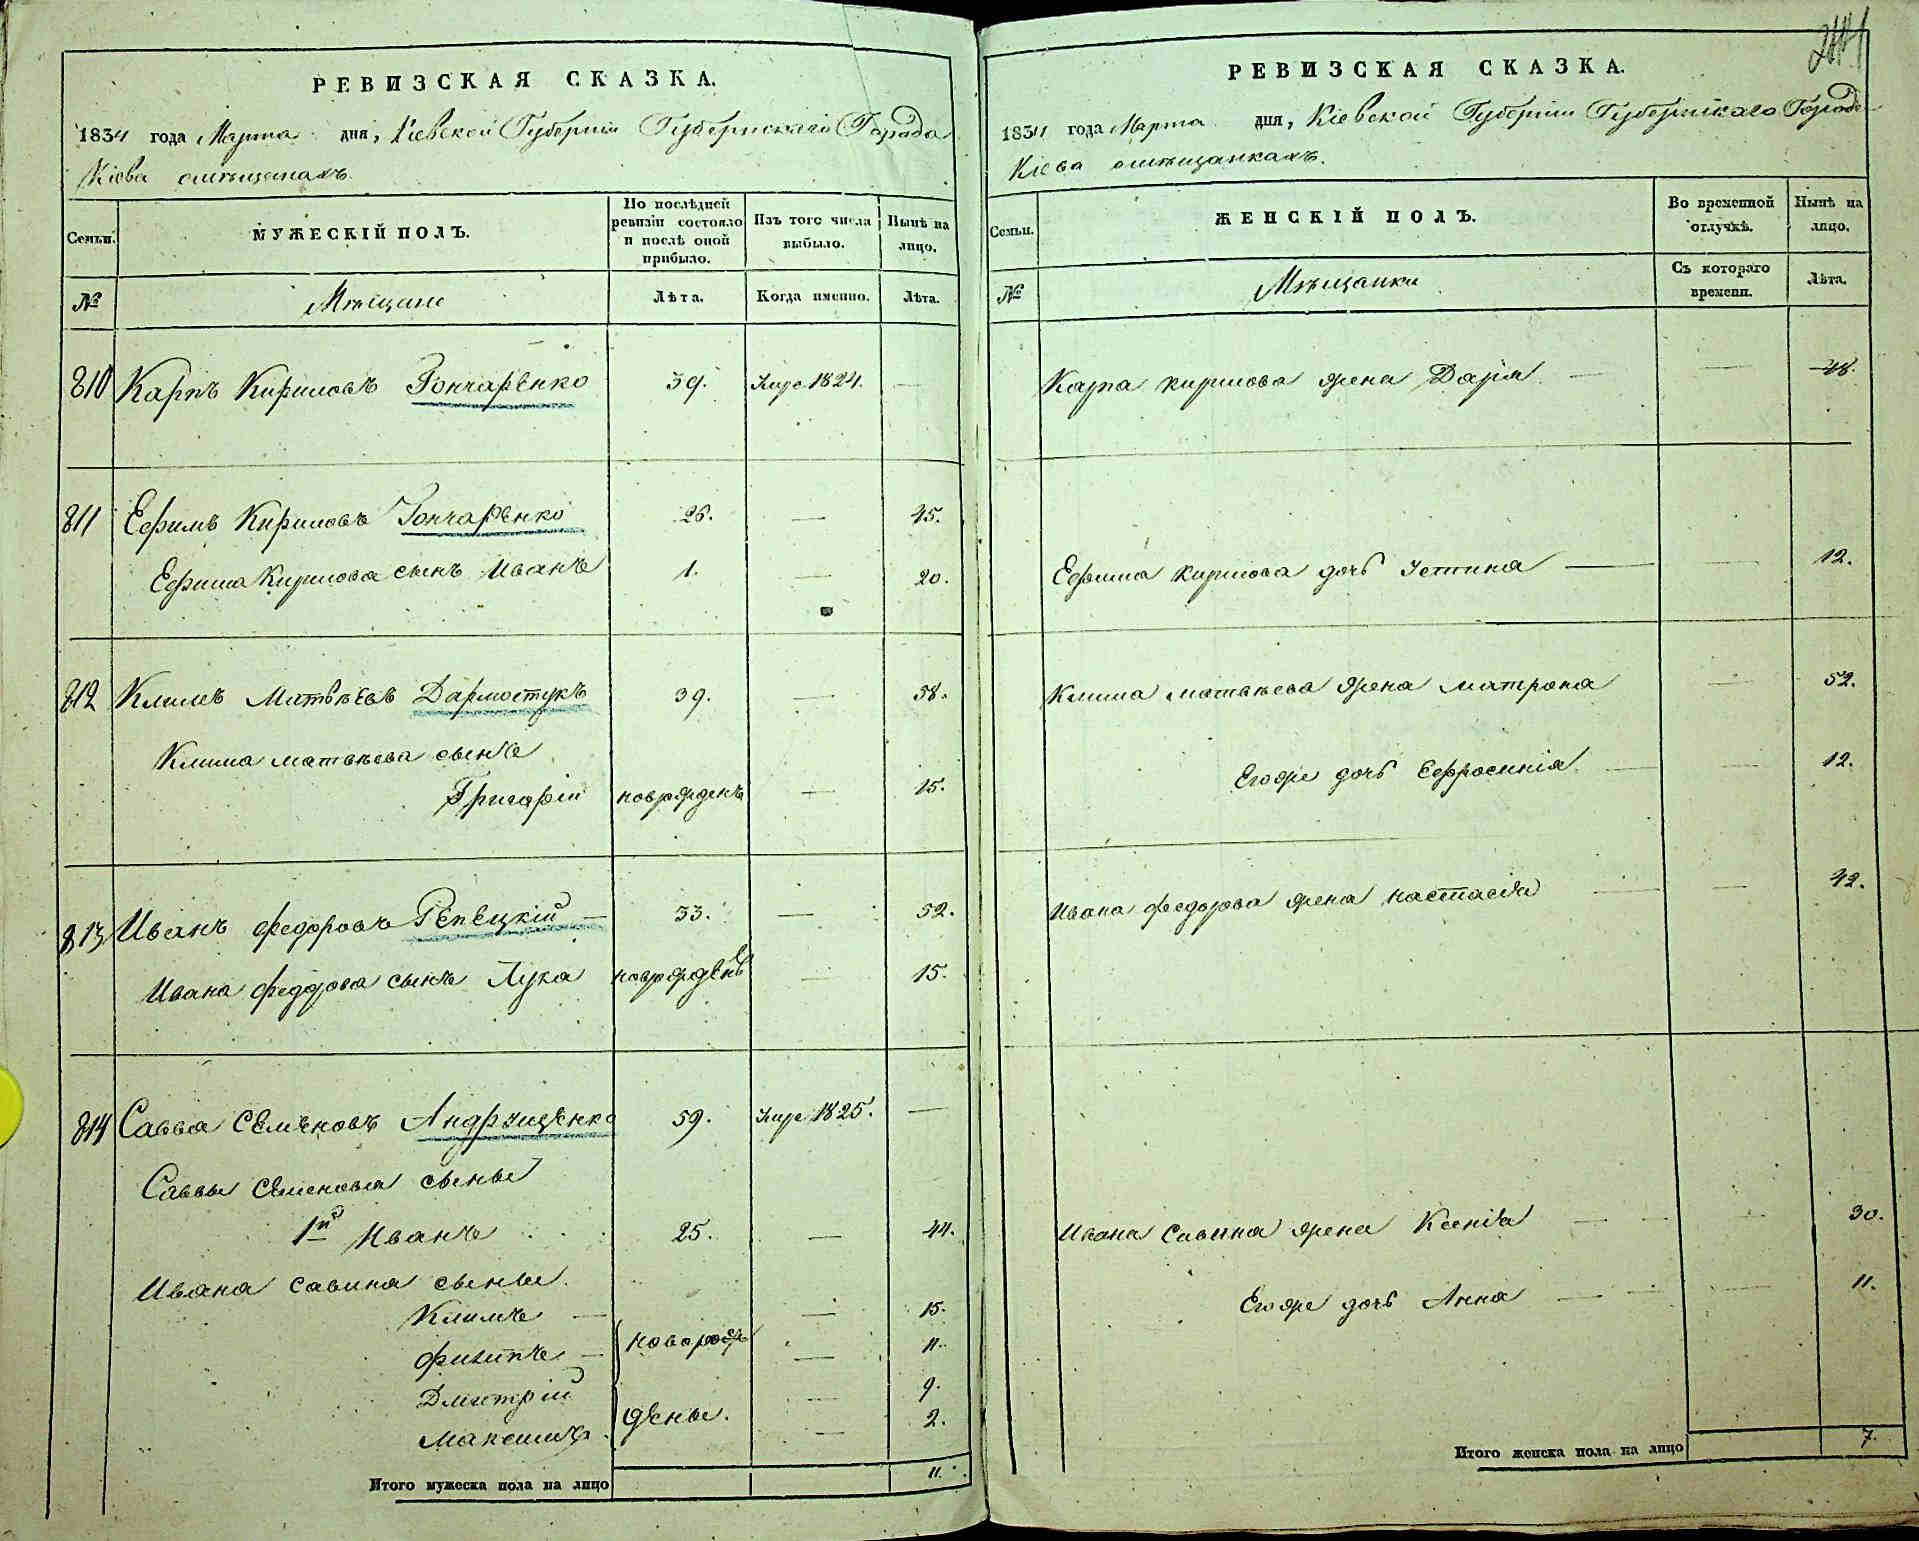 РЕВИЗСКАЯ СКАЗКА.
1834 года Марта дня, Кіевской Губерніи Губернскаго Города
Кіева омѣщанахъ.
Семьи.
МУЖЕСКІЙ ПОЛЪ.
По послѣдней ревизіи состояло и послѣ оной прибыло.
Изъ того числа выбыло.
Нынѣ на лицо.
№
Мѣщане
Лѣта.
Когда именно.
Лѣта.
810 Карпъ Кириловъ Гончаренко 39. 1824. —
811 Ефимъ Кириловъ Гончаренко 26. — 45.
Ефима Кирилова сынъ Иванъ 1. — 20.
812 Климъ Матвѣевъ Дармостукъ 39. — 58.
Клима матвѣева сынъ
Григорій новорожденъ — 15.
813 Иванъ федоровъ Репецкій — 33. — 52.
Ивана федорова сынъ Лука новорожденъ — 15.
814 Савва Семеновъ Андрущенко 59. 1825. —
Саввы Семенова сынъ
1й Иванъ 25. — 44.
Ивана савина сыны
Климъ — — 15.
филипъ — новорож — 11.
Дмитрій — 9.
Максимъ дены. — 2.
Итого мужеска пола на лицо 11.
РЕВИЗСКАЯ СКАЗКА.
1834 года Марта дня, Кіевской Губерніи Губернскаго Города
Кіева омѣщанкахъ.
Семьи.
ЖЕНСКІЙ ПОЛЪ.
Во временной отлучкѣ.
Нынѣ на лицо.
№
Мѣщанки
Съ котораго времени.
Лѣта.
Карпа кирилова жена Дарія — — 48.
Ефима кирилова дочь Устина — — 12.
Клима матвѣева жена матрона — 52.
Егоже дочь Ефросинія — — 12.
Ивана федорова жена настасія — — 42.
Ивана Савина жена Ксенія — — 30.
Егоже дочь Анна — — 11.
Итого женска пола на лицо 7.